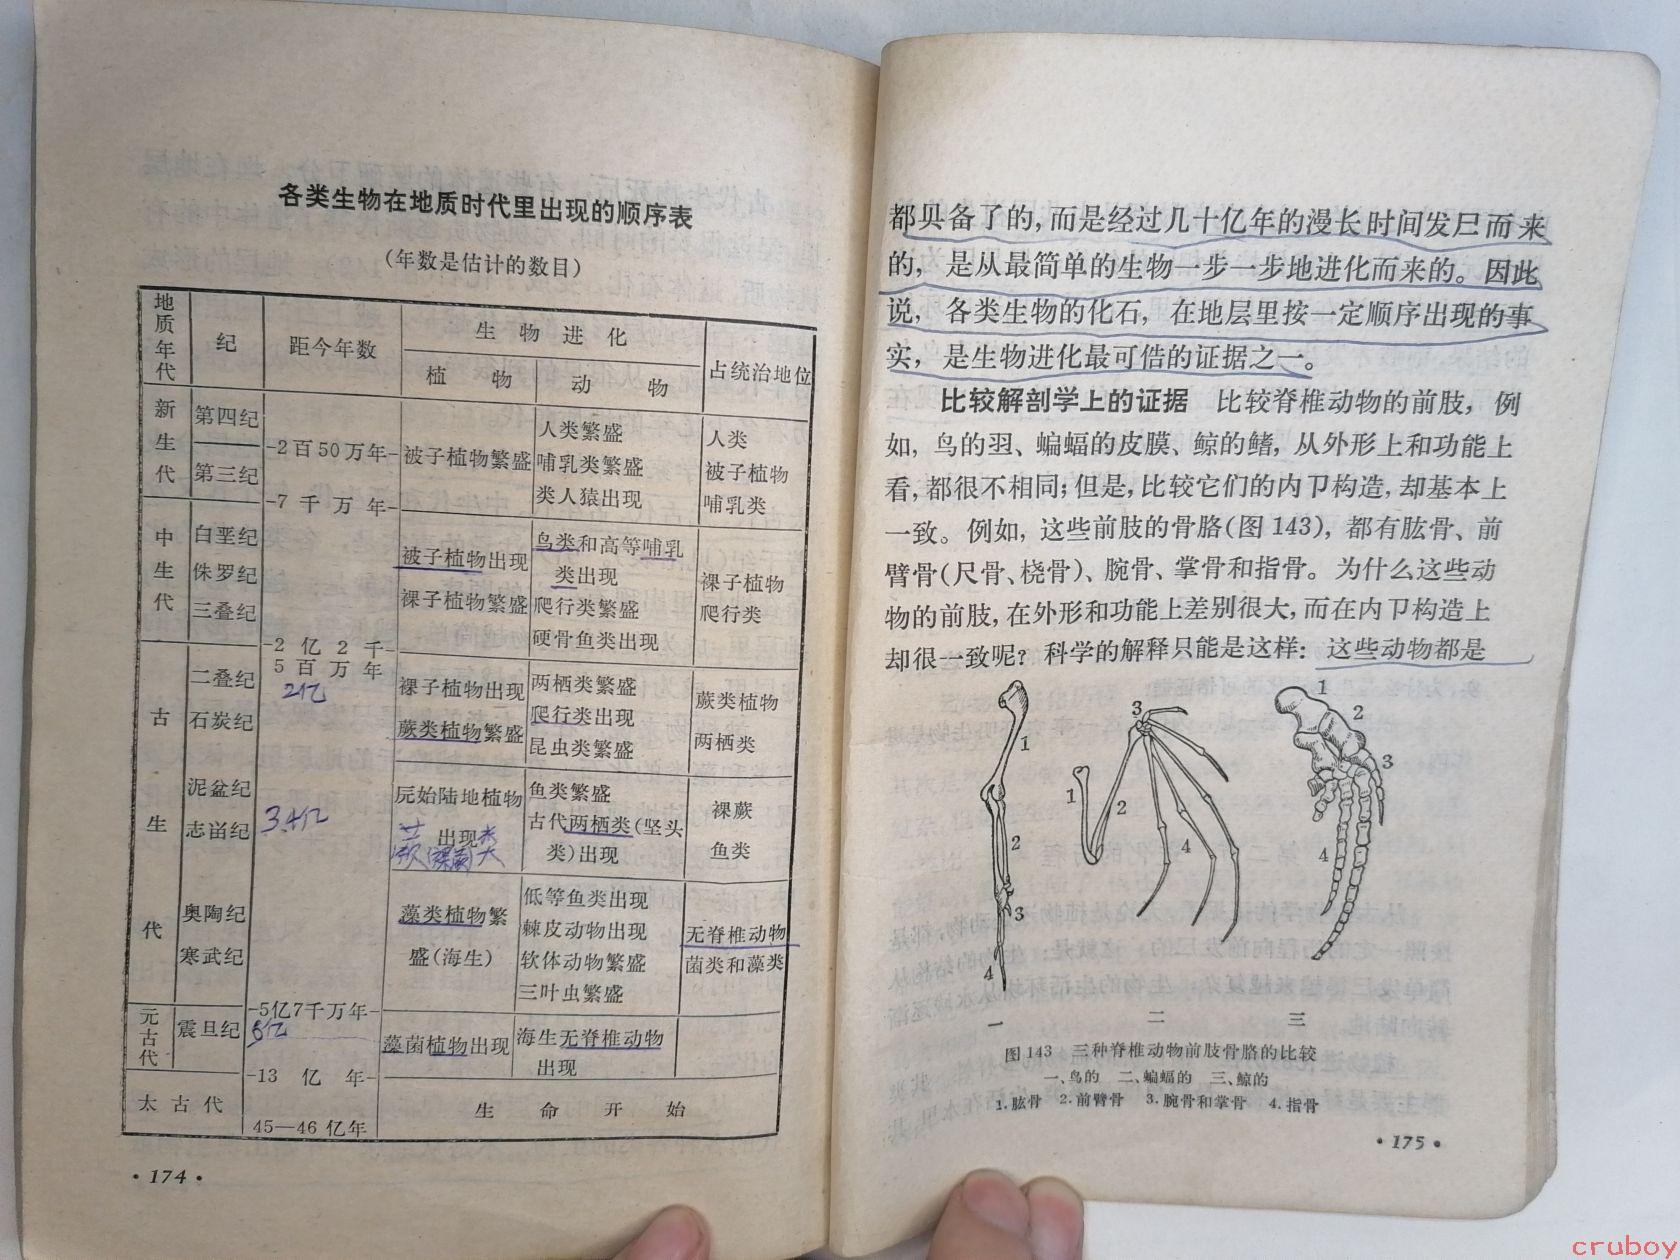 各类生物在地质时代里出现的顺序表
(年数是估计的数目)
地质年代 纪 距今年数 生物进化 占统治地位
植物 动物
新生代 第四纪 第三纪
-2百50万年-
-7千万年-
被子植物繁盛
人类繁盛
哺乳类繁盛
类人猿出现
人类
被子植物
哺乳类
中生代 白垩纪 侏罗纪 三叠纪
-2亿2千-
5百万年
2亿
被子植物出现
裸子植物繁盛
鸟类和高等哺乳
类出现
爬行类繁盛
硬骨鱼类出现
裸子植物
爬行类
古生代
二叠纪
石炭纪
裸子植物出现
蕨类植物繁盛
两栖类繁盛
爬行类出现
昆虫类繁盛
蕨类植物
两栖类
泥盆纪
志畄纪
3.4亿
始陆地植物
出现
鱼类繁盛
古代两栖类(坚头
类)出现
裸蕨
鱼类
奥陶纪
寒武纪
藻类植物繁
盛(海生)
低等鱼类出现
棘皮动物出现
软体动物繁盛
三叶虫繁盛
无脊椎动物
菌类和藻类
-5亿7千万年-
元古代 震旦纪
6亿
藻菌植物出现
海生无脊椎动物
出现
-13亿年-
太古代
45—46亿年
生命开始
·174·
都贝备了的，而是经过几十亿年的漫长时间发尸而来
的，是从最简单的生物一步一步地进化而来的。因此
说，各类生物的化石，在地层里按一定顺序出现的事
实，是生物进化最可俈的证据之一。
比较解剖学上的证据 比较脊椎动物的前肢，例
如，鸟的羽、蝙蝠的皮膜、鲸的鳍，从外形上和功能上
看，都很不相同；但是，比较它们的内卩构造，却基本上
一致。例如，这些前肢的骨胳(图143)，都有肱骨、前
臂骨(尺骨、桡骨)、腕骨、掌骨和指骨。为什么这些动
物的前肢，在外形和功能上差别很大，而在内卩构造上
却很一致呢？科学的解释只能是这样：这些动物都是
1
2
3
4
3
1
2
4
1
2
3
4
一 二 三
图143 三种脊椎动物前肢骨胳的比较
一、鸟的 二、蝙蝠的 三、鲸的
1.肱骨 2.前臂骨 3.腕骨和掌骨 4.指骨
·175·
cruboy